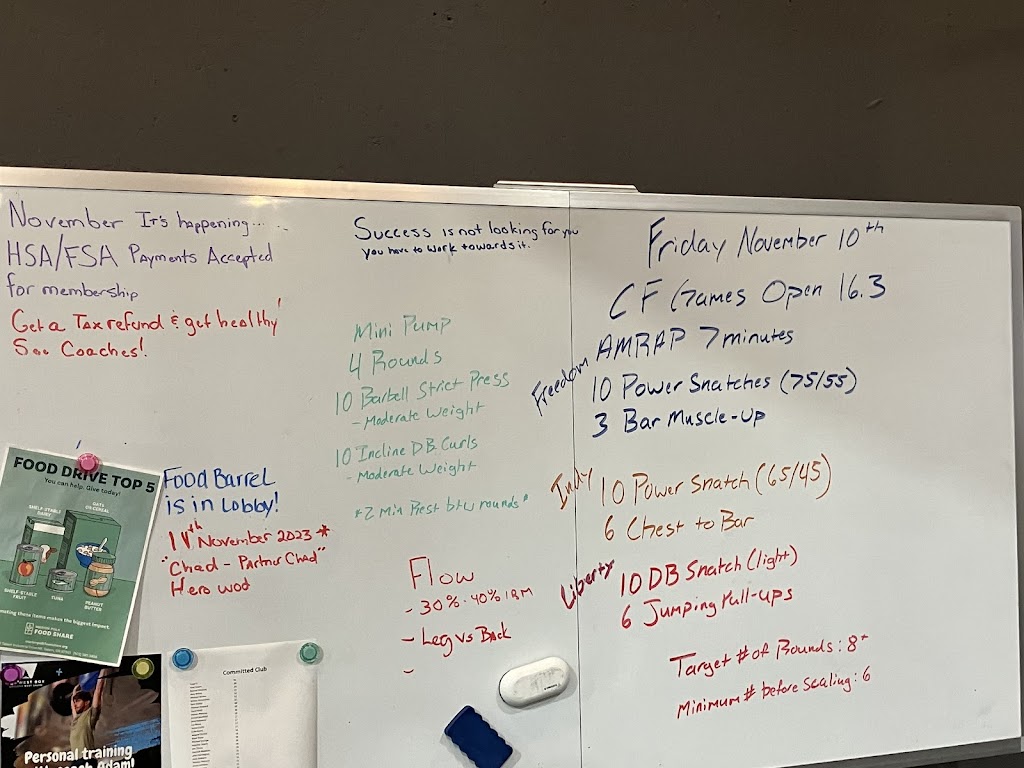 November It's happening...
HSA/FSA Payments Accepted
for membership
Get a Tax refund & get healthy!
See Coaches!
FOOD DRIVE TOP 5
You can help. Give today!
SHELF-STABLE
DAIRY
OATS
OR CEREAL
SHELF-STABLE
FRUIT
TUNA
PEANUT
BUTTER
these items makes the biggest impact.
FOOD SHARE
Food Barrel
is in Lobby!
11th November 2023 *
"Chad - Partner Chad"
Hero wod
Personal training
Adam!
Committed Club
Success is not looking for you
you have to work towards it.
Mini Pump
4 Rounds
10 Barbell Strict Press
- Moderate Weight
10 Incline DB Curls
- Moderate Weight
*2 Min Rest btw rounds*
Flow
- 30%-40% 1RM
- Leg vs Back
-
Friday November 10th
CF Games Open 16.3
Freedom
AMRAP 7 minutes
10 Power Snatches (75/55)
3 Bar Muscle-Up
Indy
10 Power Snatch (65/45)
6 Chest to Bar
Liberty
10 DB Snatch (light)
6 Jumping Pull-ups
Target # of Rounds: 8+
Minimum # before Scaling: 6